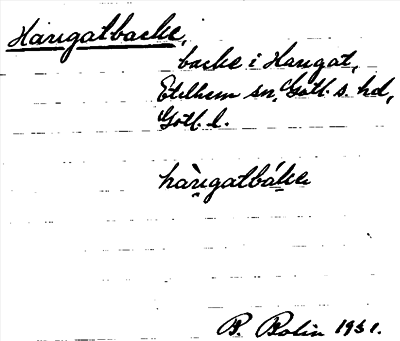 Hangatbacke,
backe i Hangat,
Etelhem sn, Gotl. s. hd,
Gotl. l.
hàngatbáke
B. Bolin 1931.